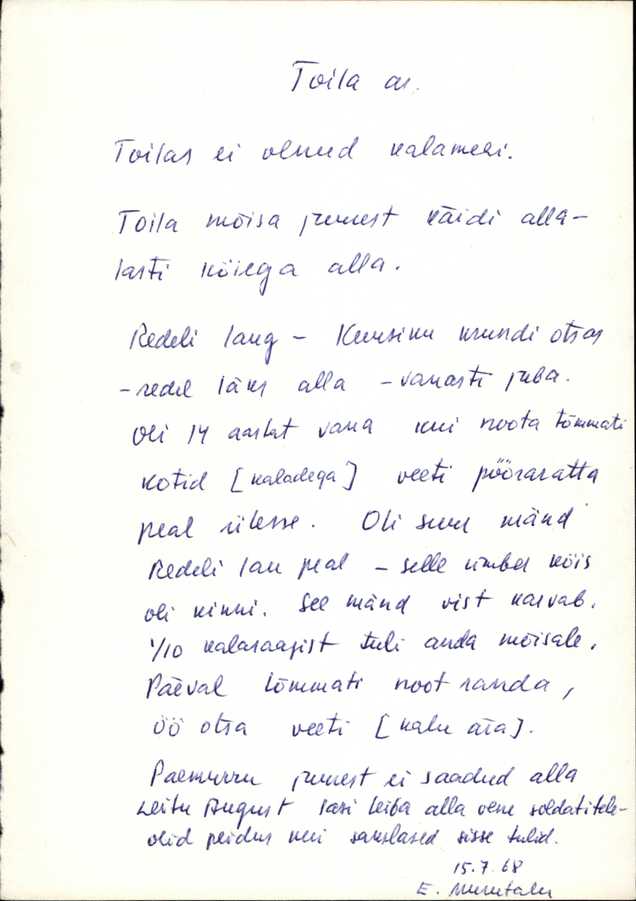 Toila as.
Toilas ei olnud kalamehi.
Toila mõisa juurest käidi alla-
lasti köiega alla.
Redeli laug – Kuusiku krundi otsas
– redel läks alla – vanasti juba.
Oli 14 aastat vana kui noota tõmmati
kotid [kaladega] veeti pööraratta
peal ülesse. Oli suur mänd
Redeli lau peal – selle ümber köis
oli kinni. See mänd vist kasvab.
1/10 kalasaagist tuli anda mõisale.
Päeval tõmmati noot randa,
öö otsa veeti [kalu ära].
Paemurru juurest ei saadud alla
August lasi leiba alla vene soldatitele-
olid peidus kui sakslased sisse tulid.
15.7.68
E.